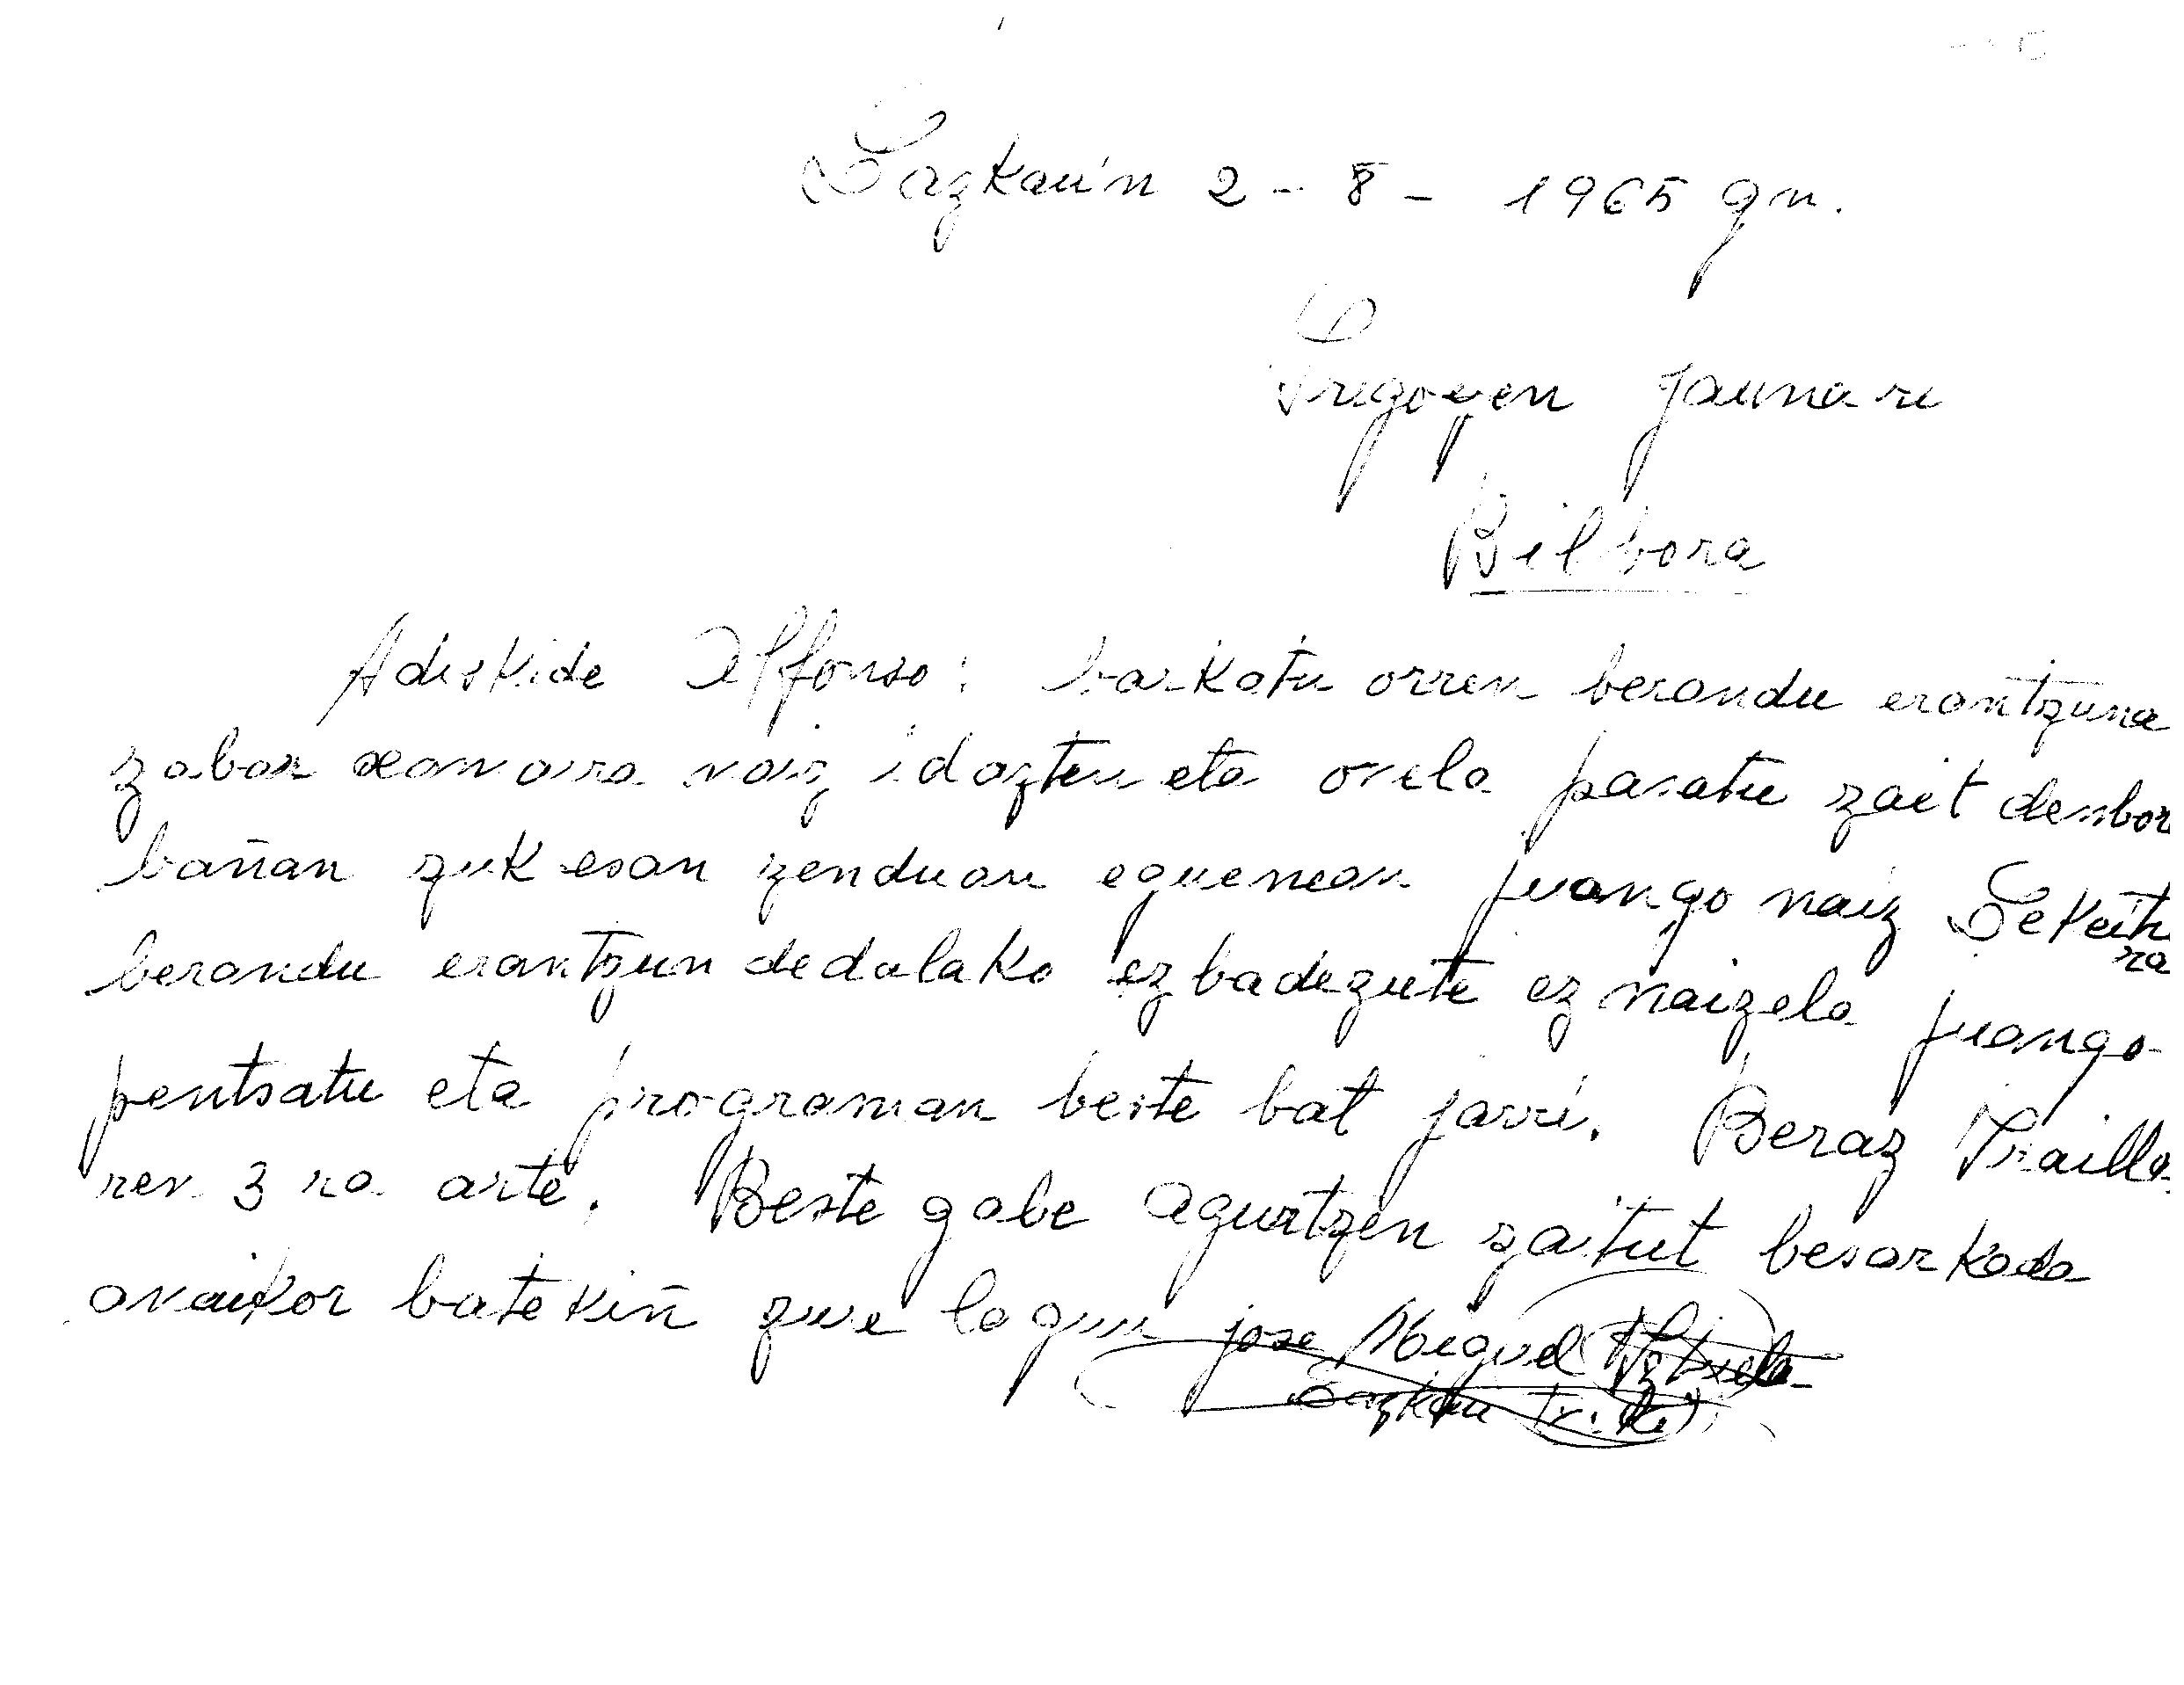 Lazkau'n 2-8-1965 gn.
Irigoyen jaunari
Bilbora
Adiskide Alfonso: barkatu orren berandu erantzuna
zabar xamarra naiz idazten eta onela pasatu zait denbor
bañan zuk esan zenduan eguenean juango naiz Lekeiti
ra
berandu erantzun dedalako ez badezute ez naizela juango
pentsatu eta programan beste bat jarri. Beraz Iraille
ren 3 ra arte. Beste gabe agurtzen zaitut besarkada
anaikor batekiñ zure lagun jose Miguel
Lazkau